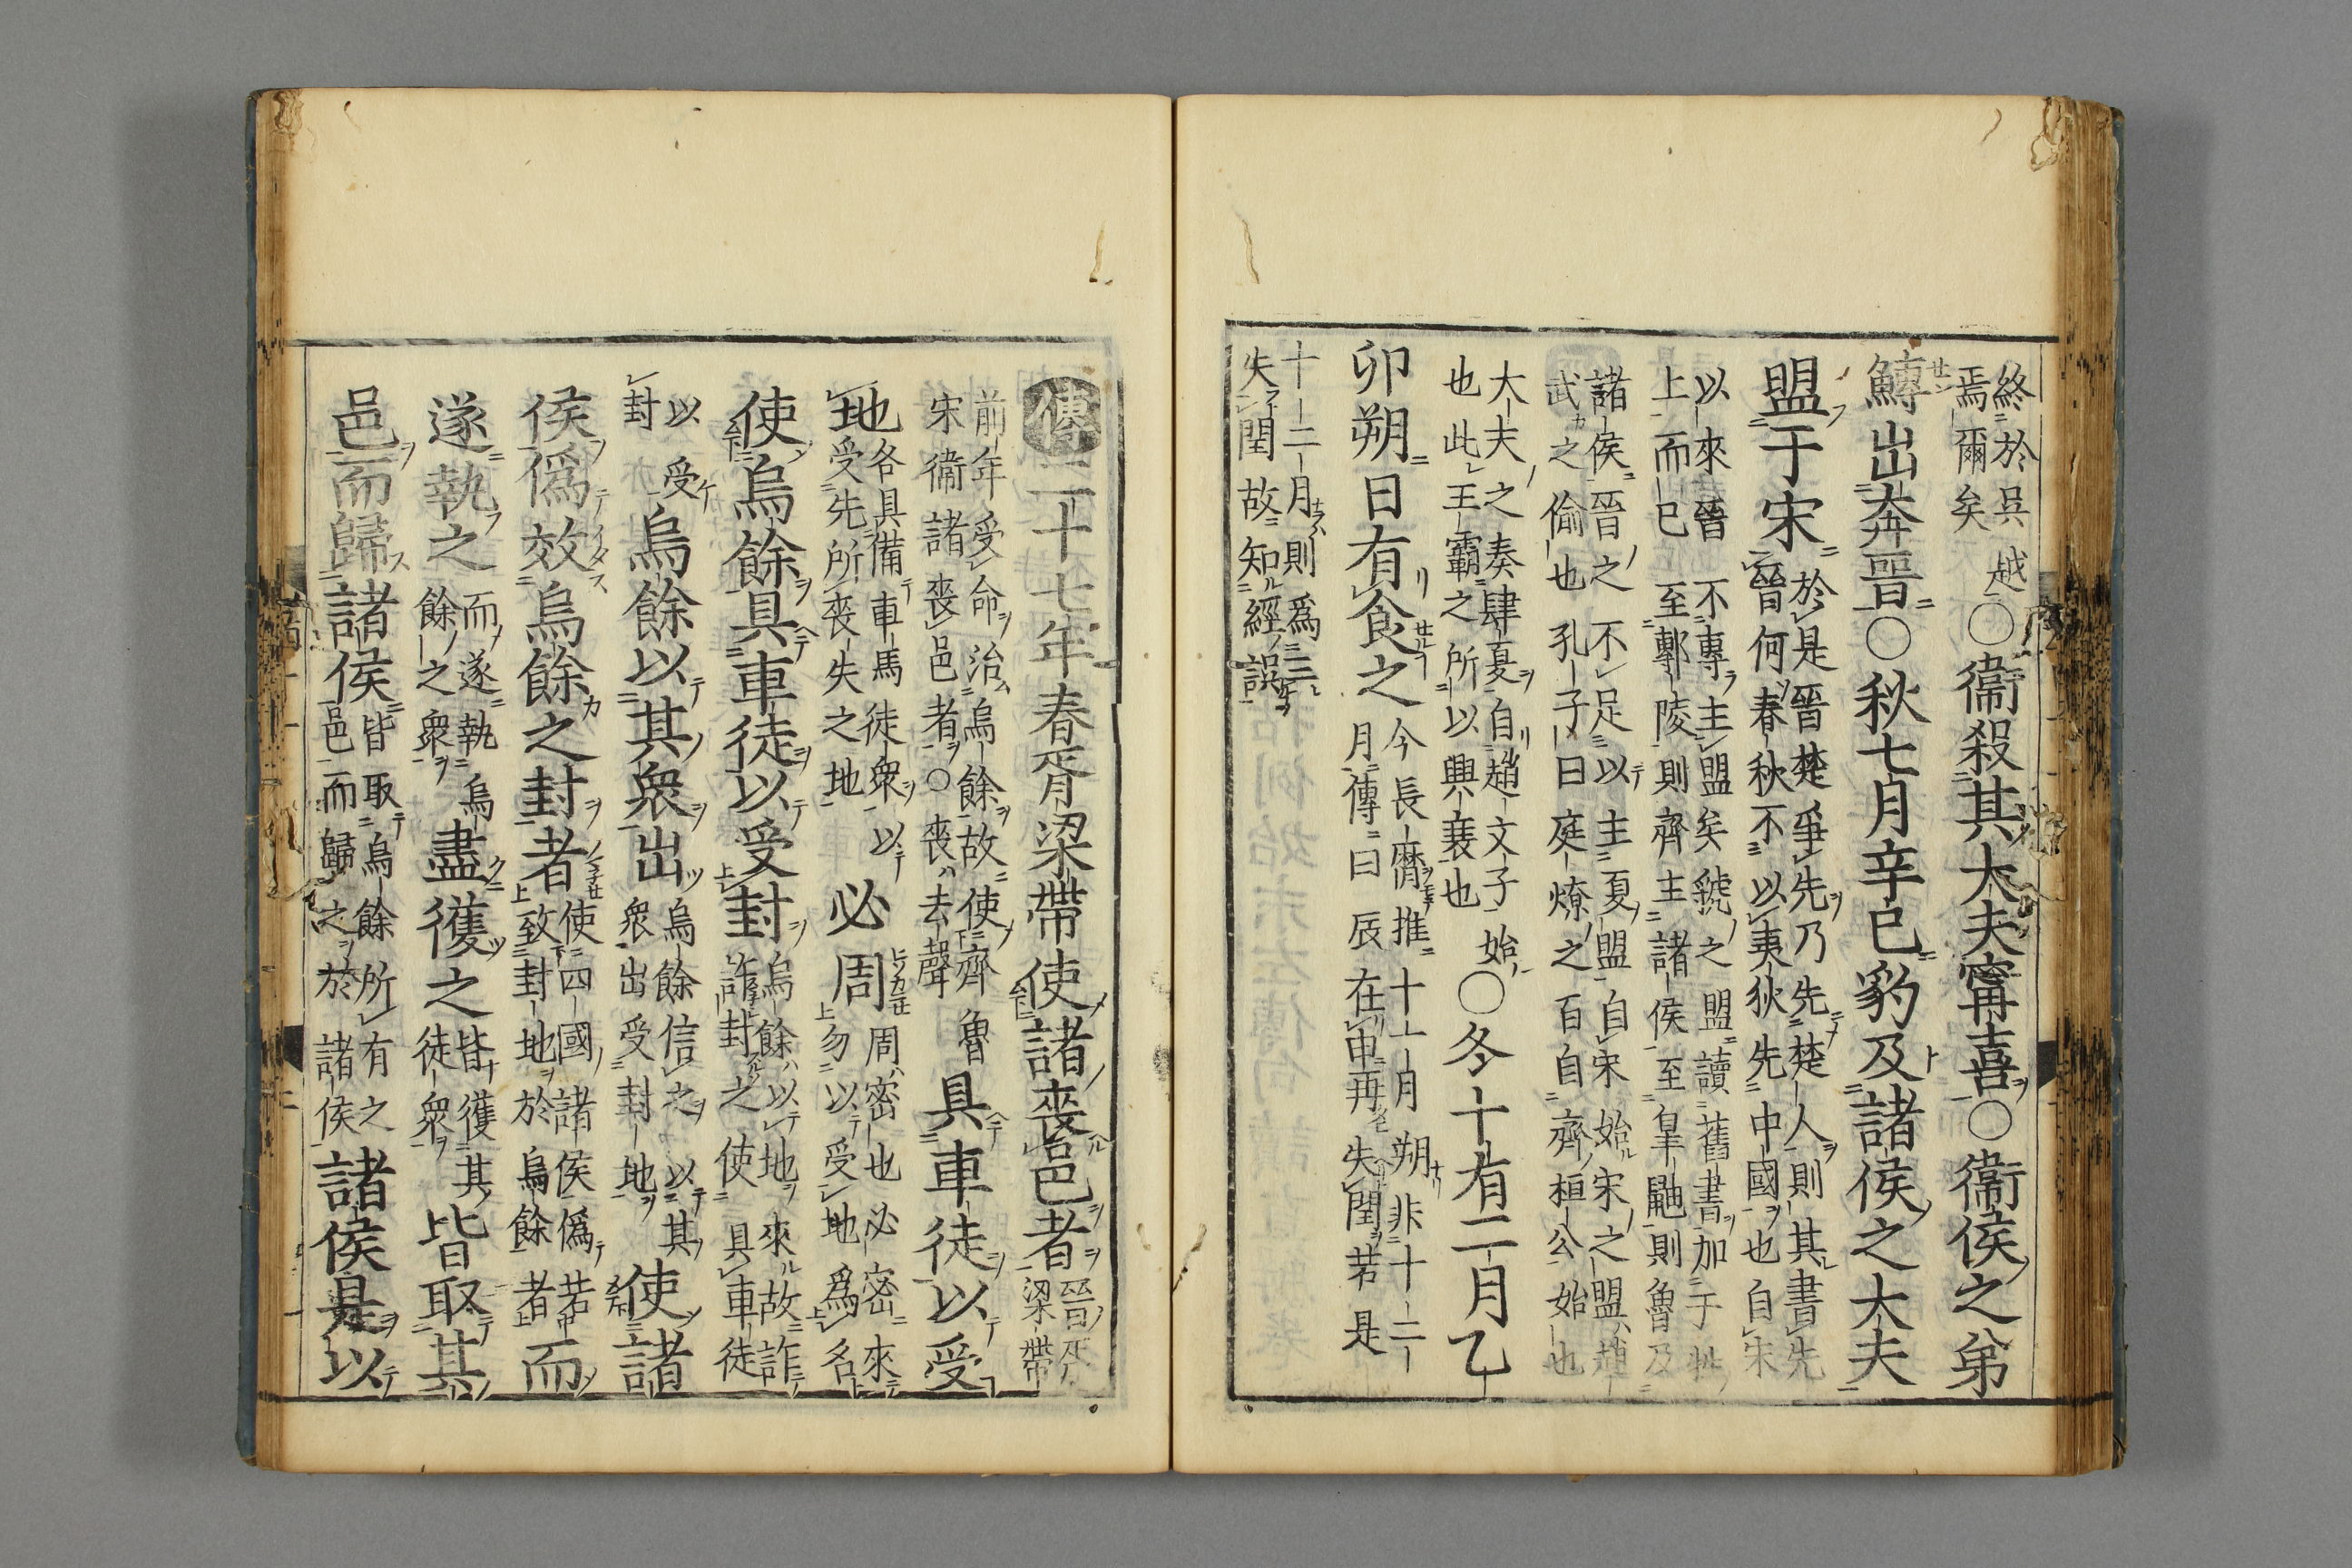 終於吳越
焉爾矣
○衞殺其大夫甯喜○衞侯之弟
鱄出奔晉○秋七月辛巳豹及諸侯之大夫
盟于宋
於是晉楚爭先乃先楚人則其書先
晉何春秋不以夷狄先中國也自宋
以來晉不專主盟矣虢之盟讀舊書加于牲
上而已至鄟陵則齊主諸侯至皐鼬則魯及
諸侯晉之不足以主夏盟自宋始宋之盟趙
武之偷也孔子曰庭燎之百自齊桓公始也
大夫之奏肆夏自趙文子始
也此王霸之所以興衰也
○冬十有二月乙
卯朔日有食之
今長曆推十一月朔非十二
月傳曰辰在申再失閏若是
十二月則爲三
失閏故知經誤
傳二十七年春胥梁帶使諸喪邑者
晉胥
梁帶
前年受命治烏餘故使齊魯
宋衞諸喪邑者○喪去聲
具車徒以受
地
各具備車馬徒衆以
受先所喪失之地
必周
周密也必密來
勿以受地爲名
使烏餘具車徒以受封
烏餘以地來故詐
詐封之使具車徒
以受
封
烏餘以其衆出
烏餘信之以其
衆出受封地
使諸
侯僞效烏餘之封者
使四國諸侯僞若
致封地於烏餘者
而
遂執之
而遂執烏
餘之衆
盡獲之
皆獲其
徒衆
皆取其
邑而歸諸侯
皆取烏餘所有之
邑而歸之於諸侯
諸侯是以